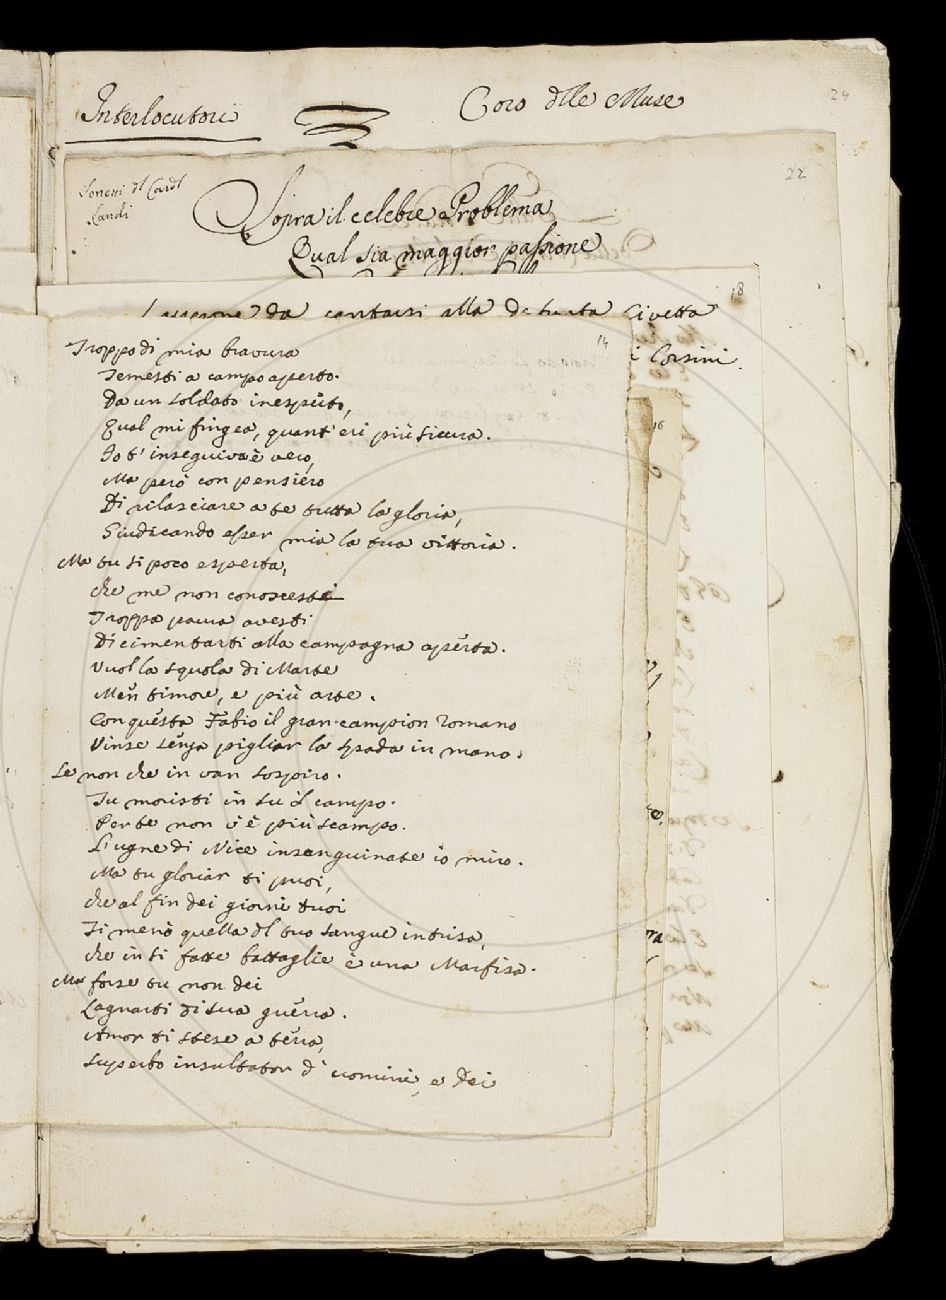 Interlocutori
Coro dlle Muse
24
22
Sonetti dl Cardl
Landi
Sopra il celebre Problema
Qual sia maggior passione
18
da cantarsi alla defunta Civetta
i Corsini.
14
16
Troppo di mia bravura
Temesti a campo aperto.
Da un soldato inesperto,
Qual mi fingea, quant' eri più sicura.
Io t' inseguiva è vero,
Ma però con pensiero
Di rilasciare a te tutta la gloria,
Giudicando esser mia la tua vittoria.
Ma tu sì poco esperta,
che me non conoscesti
Troppa paura avesti
Di cimentarti alla campagna aperta.
Vuol la squola di Marte
Men timore, e più arte.
Con questa Fabio il gran campion Romano
Vinse senza pigliar la spada in mano.
Se non che in van sospiro.
Tu moristi in su 'l campo.
Per te non v' è più scampo.
L' ugne di Nice insanguinate io miro.
Ma tu gloriar ti puoi,
che al fin dei giorni tuoi
Ti menò quella dl tuo sangue intrisa,
che in sì fatte battaglie è una Marfisa.
Ma forse tu non dei
Lagnarti di sua guerra.
Amor ti stese a terra,
superbo insultator d' uomini, e Dei